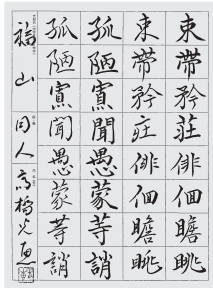 束帶矜莊俳佪瞻眺
束帶矜莊俳佪瞻眺
孤陋寡聞愚蒙等誚
孤陋寡聞愚蒙等誚
福山 同人 高橋